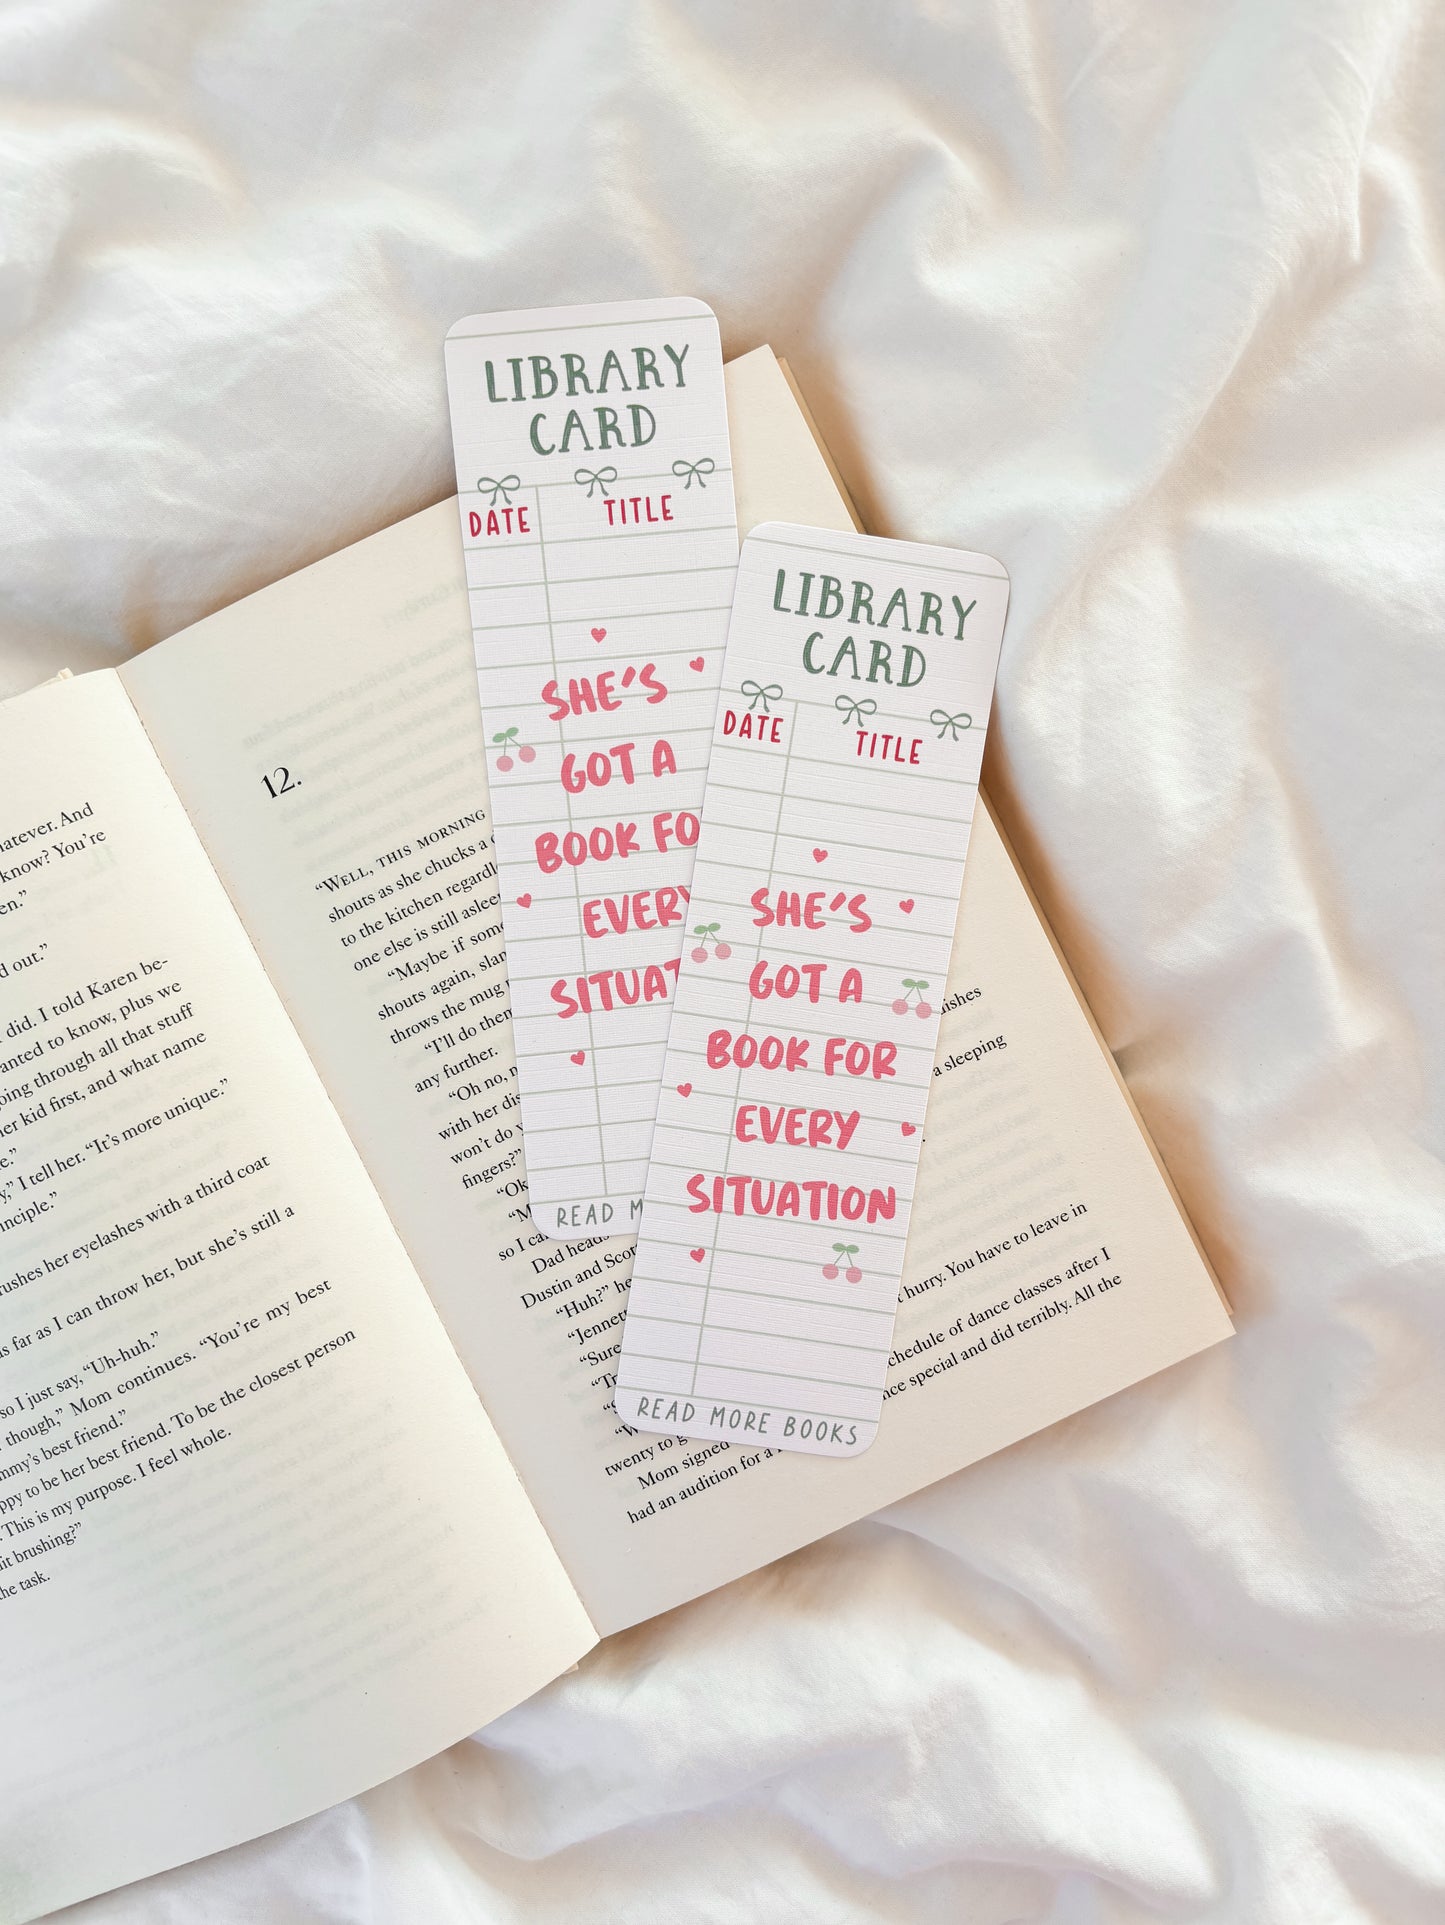 LIBRARY
CARD
DATE TITLE
SHE'S
GOT A
BOOK FO
EVERY
SITUAT
READ M
LIBRARY
CARD
DATE TITLE
SHE'S
GOT A
BOOK FOR
EVERY
SITUATION
READ MORE BOOKS
hatever. And
know? You're
en."
d out."
did. I told Karen be-
anted to know, plus we
oing through all that stuff
er kid first, and what name
e."
y," I tell her. "It's more unique."
inciple."
rushes her eyelashes with a third coat
as far as I can throw her, but she's still a
so I just say, "Uh-huh."
though," Mom continues. "You're my best
mmy's best friend."
ppy to be her best friend. To be the closest person
. This is my purpose. I feel whole.
it brushing?"
he task.
12.
"WELL, THIS MORNING
shouts as she chucks a
to the kitchen regardl
one else is still aslee
"Maybe if som
shouts again, slan
throws the mug
"I'll do then
any further.
"Oh no, n
with her dis
won't do y
fingers?"
"Ok
"M
so I ca
Dad heads
Dustin and Scot
"Huh?" he
"Jennett
"Sure
"Tr
"W
twenty to g
Mom signed
had an audition for a
ishes
a sleeping
hurry. You have to leave in
chedule of dance classes after I
nce special and did terribly. All the